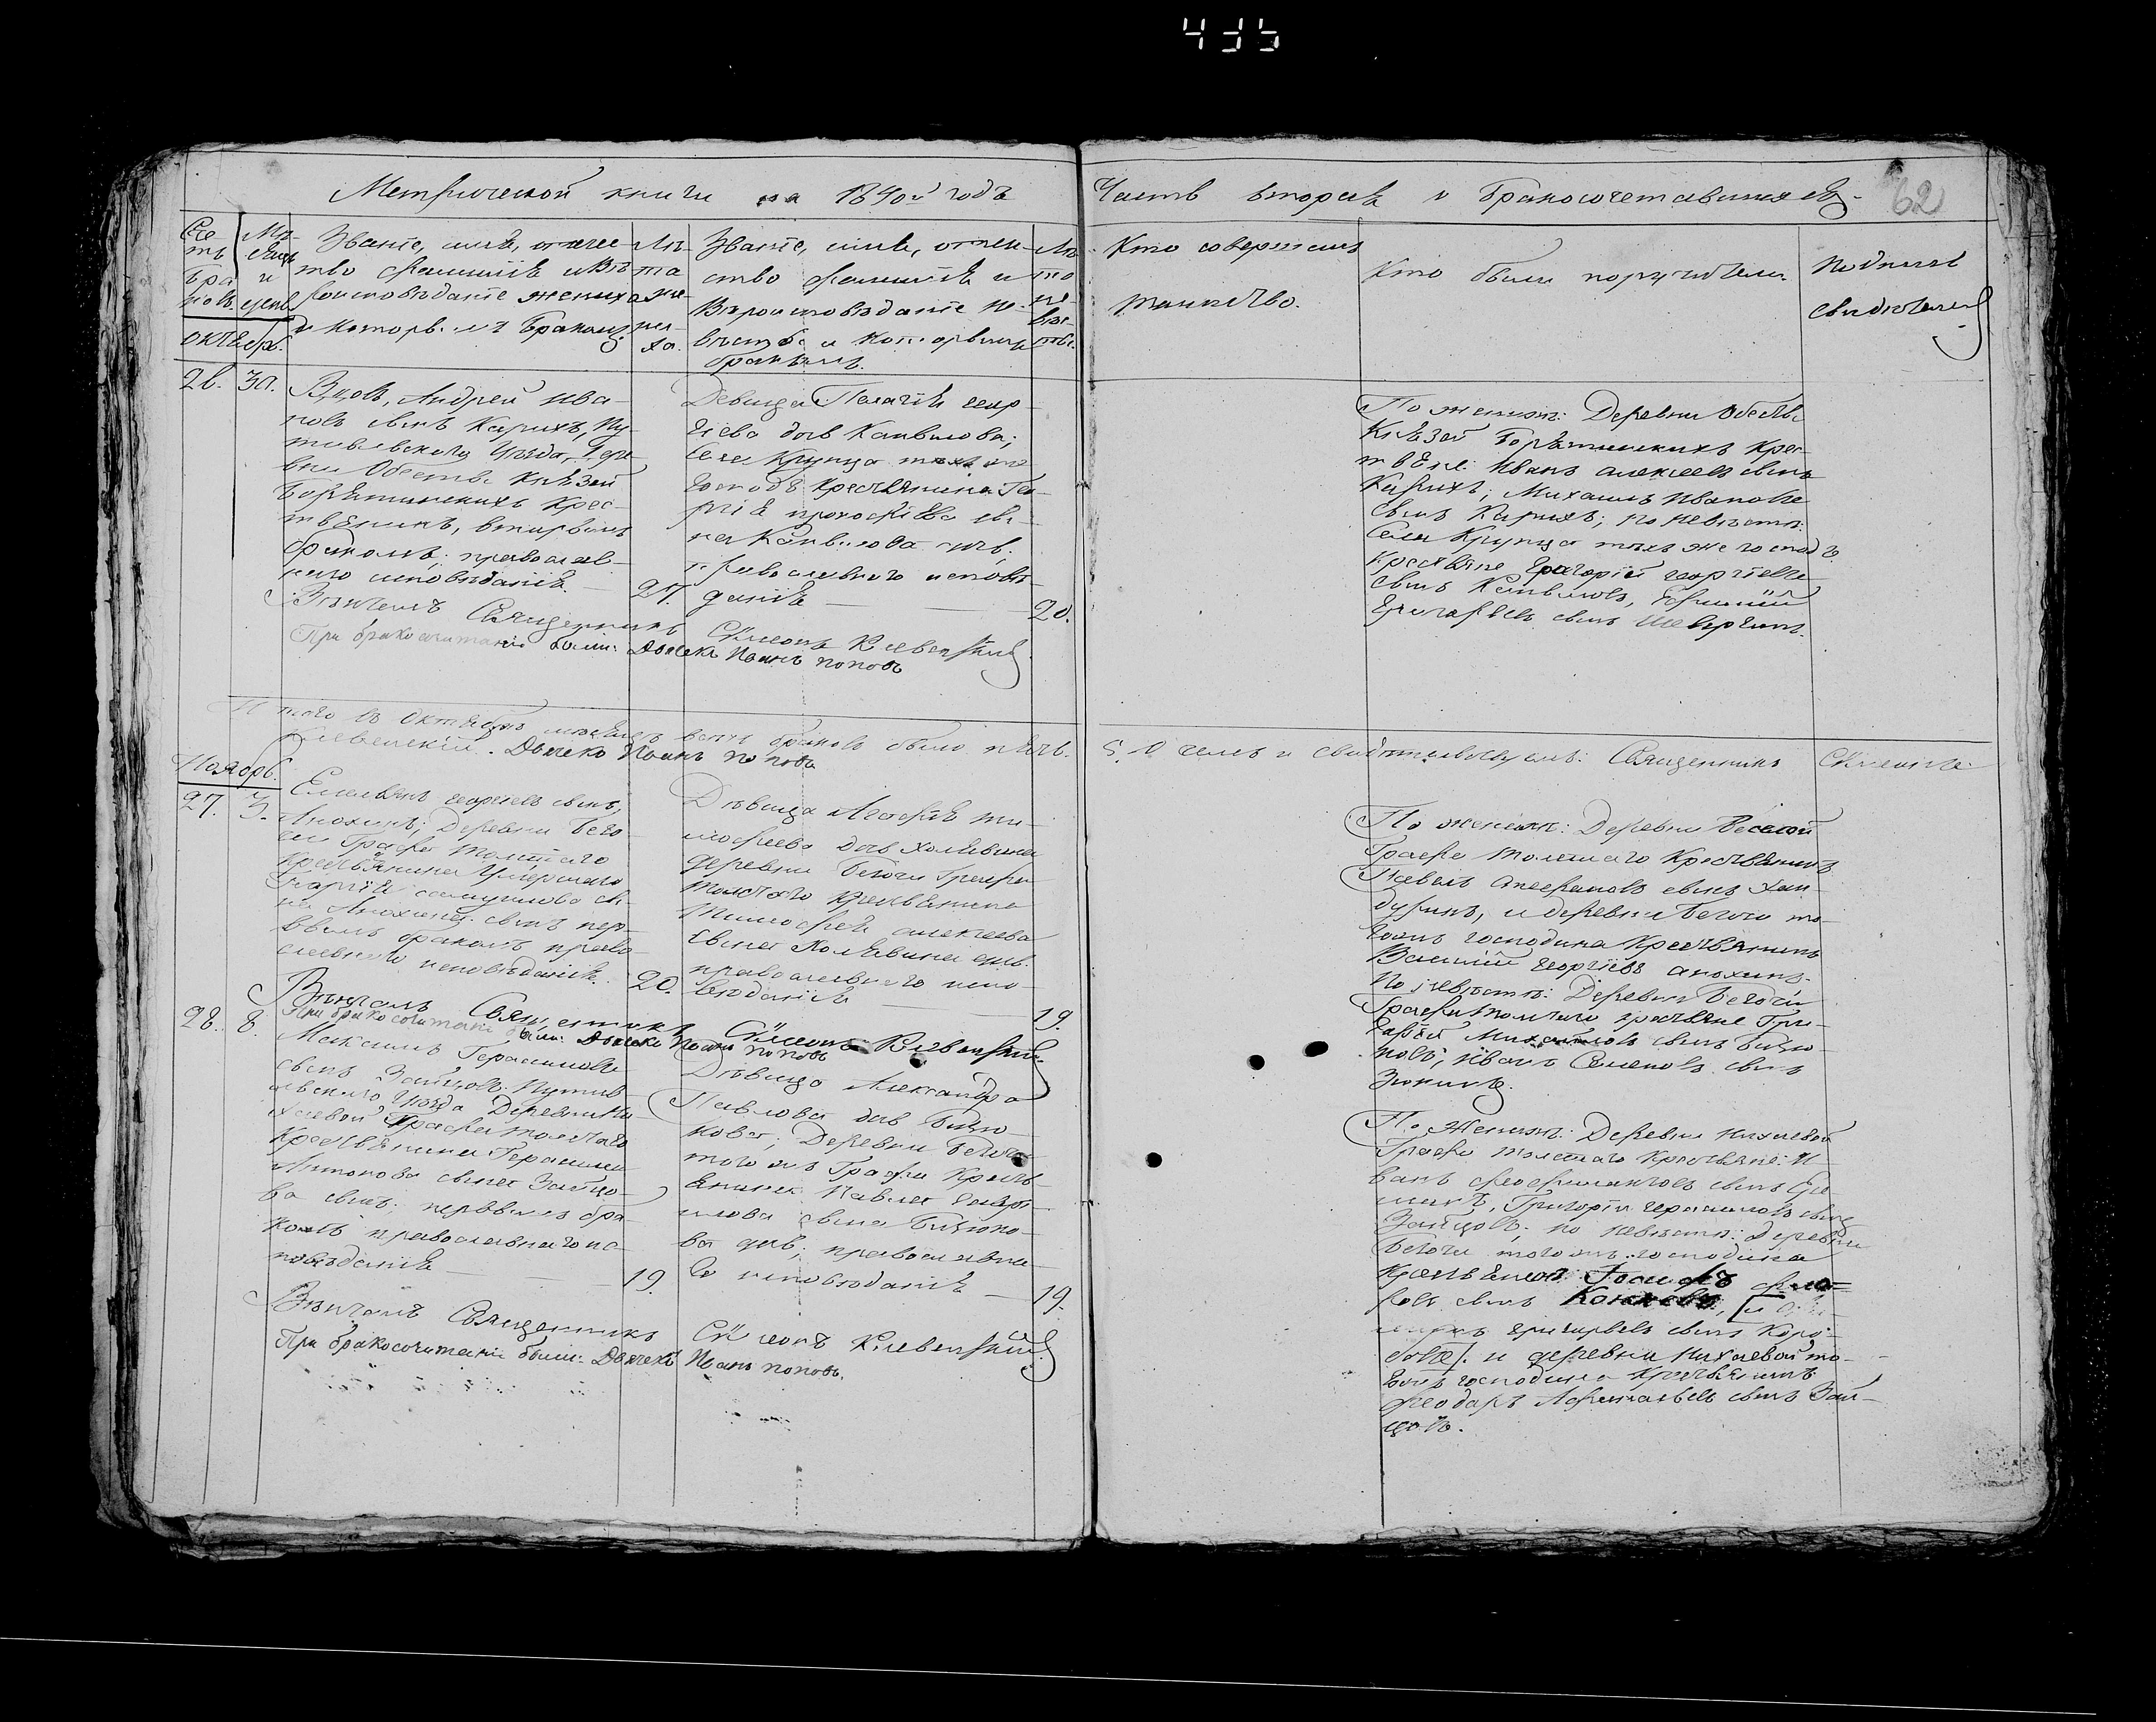 435
Метрической книги на 1840й годъ
Часть вторая о бракосочетавшихся
62
Сче-
тъ
бра
ковъ.
Мѣ-
сяцъ
и
день
Званіе, имя, отече-
ство фамилія и вѣ-
роисповѣданіе жениха
и которымъ бракомъ
Лѣ-
та
же-
ни-
ха.
Званіе, имя, отче-
ство фамилія и
Вѣроисповѣданіе не-
вѣсты и которымъ
бракомъ.
Лѣ
та
не-
вѣс-
ты.
Кто совершалъ
таинство.
Кто были поручители
Подпись
свидѣтелей
октябр.
26. 30.
Вдовъ, Андрей Ива-
новъ сынъ Карихъ, Пу-
тивльскаго уѣзда, дере
вни Обеста Князей
Борятинскихъ крес-
тьянинъ, вторымъ
бракомъ; православ-
наго исповѣданія. 27.
Девица Пелагія Геор-
гіева дочь Канвилова;
Села Крупца тѣхъ же
господъ крестьянина Ге-
ргія Прокофіева сы-
на Канвилова дочь.
православнаго исповѣ-
данія 20.
Вѣнчалъ Священникъ Сѵмеонъ Клевенскій
При бракосочитаніи были: Дьячекъ Иоанъ поповъ
По женихѣ: Деревни Обеста
Князей Борятинскихъ крес-
тьяне: Иванъ Алексеевъ сынъ
Карихъ; Михаилъ Ивановъ
сынъ Карихъ; по невѣстѣ:
Села Крупца тѣхъ же господъ
крестьяне Григорій Георгіевъ
сынъ Канвиловъ,
Григорьевъ сынъ
Итого въ Октябрѣ месяцѣ всѣхъ браковъ было пять.
5. О семъ и свидѣтельствуемъ: Священникъ Сѵмеонъ
Клевенскій. Дьячекъ Иоанъ поповъ
Ноябр.
27. 3.
Емельянъ Георгіевъ сынъ,
Анохинъ; Деревни Бего-
чи Графа Толстаго
крестьянина умершаго
Георгія Самуилова сы-
на Анохина сынъ пер-
вымъ бракомъ право-
славнаго исповѣданія. 20.
Дѣвица Агафія Ти-
мофеева дочь Холявина
деревни Бегочи Графа
Толстаго крестьянина
Тимофея Алексеева
сына Холявина дочь.
православнаго испо-
вѣданія 19.
Вѣнчалъ Священникъ Сѵмеонъ Клевенскій
При бракосочитаніи были: Дьячекъ Иоанъ поповъ
По женихѣ: Деревни Веселой
Графа Толстаго крестьянинъ
Павелъ сынъ Хан-
дуринъ, и деревни Бегочи то-
гожъ господина крестьянинъ
Василій Георгіевъ Анохинъ.
По невѣстѣ: Деревни Бегочи
Графа Толстаго крестьяне Гри-
горій Михайловъ сынъ Бизю-
ковъ; Иванъ Семеновъ сынъ
Зюкинъ.
28. 8.
Максимъ Герасимовъ
сынъ Зайцовъ Путив-
льскаго уѣзда Деревни Ни-
хаевой Графа Толстаго
Крестьянина Герасима
Антонова сына Зайцо-
ва сынъ; первымъ бра-
комъ православнаго ис-
повѣданія 19.
Дѣвица Александра
Павлова дочь Бизю-
кова; Деревни Бегочи
того жъ Графа Кресть-
янина Павла Гаври-
лова сына Бизюко-
ва дочь; православна-
го исповѣданія 19.
Вѣнчалъ Священникъ Сѵмеонъ Клевенскій
При бракосочитаніи были: Дьячекъ Иоанъ поповъ.
По женихѣ: Деревни Нихаевой
Графа Толстаго Крестьяне: И-
ванъ сынъ
Григорій Герасимовъ сынъ
Зайцовъ; по невѣстѣ: Деревни
Бегочи тогожъ господина
Крестьянинъ: Іосифъ
сынъ
Григорьевъ сынъ
и деревни Нихаевой то-
гожъ господина крестьянинъ
Феодоръ сынъ Зай-
цовъ.